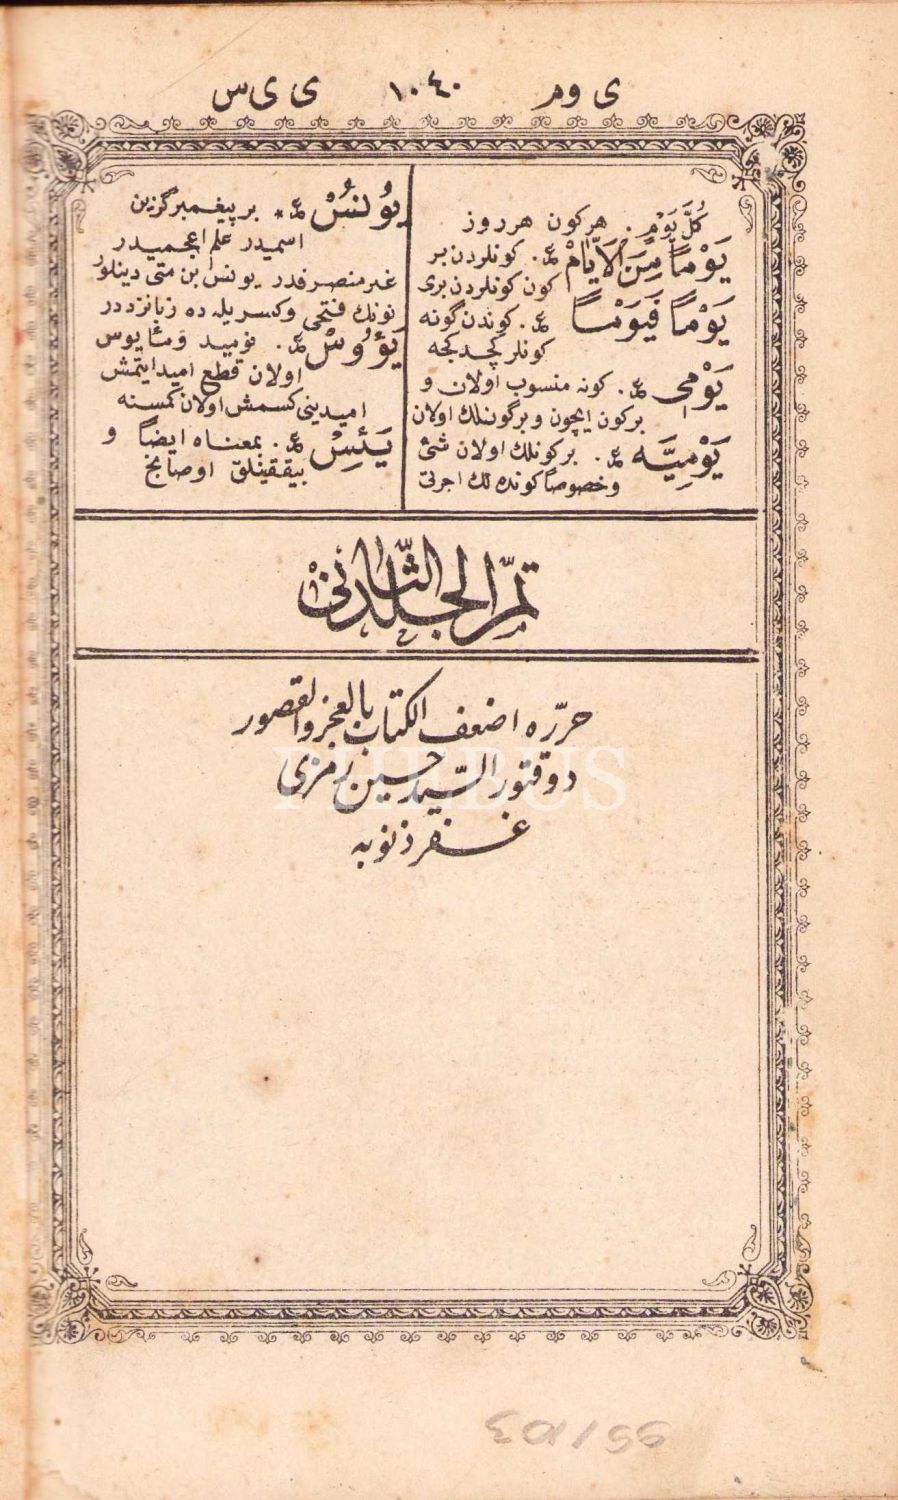 ی وم ١٠٤٠ ی ی س
كُلَّ يَوْمٍ . هر كون هر روز
يَوْماً مِنَ الْاَيَّامْ ع . كونلردن بر
كون كونلردن بری
يَوْماً فَيَوْماً ع . كوندن كونه
كونلر كچدكجه
يَوْمِی ع . كونه منسوب اولان و
بر كون ايچون و بر كونلك اولان
يَوْمِيَّه ع . بر كونلك اولان شئ
و خصوصا كونده لك اجرتی
يُونُسْ ع * بر پيغمبر كزين
اسميدر علم اعجميدر
غير منصرفدر يونس بن متی دينلور
نونك فتحی و كسريله ده زبانزددر
يَؤُوسْ ع . نوميد و مأيوس
اولان قطع اميد ايتمش
اميدينی كسمش اولان كمسنه
يَئِسْ ع . بمعناه ايضاً و
بيققينلق اوصانج
تمّ الجلد الثانی
حرّره اضعف الكتاب بالعجز والقصور
دوقتور السّيد حسين رمزی
غفر ذنوبه
PHEBUS
55/103